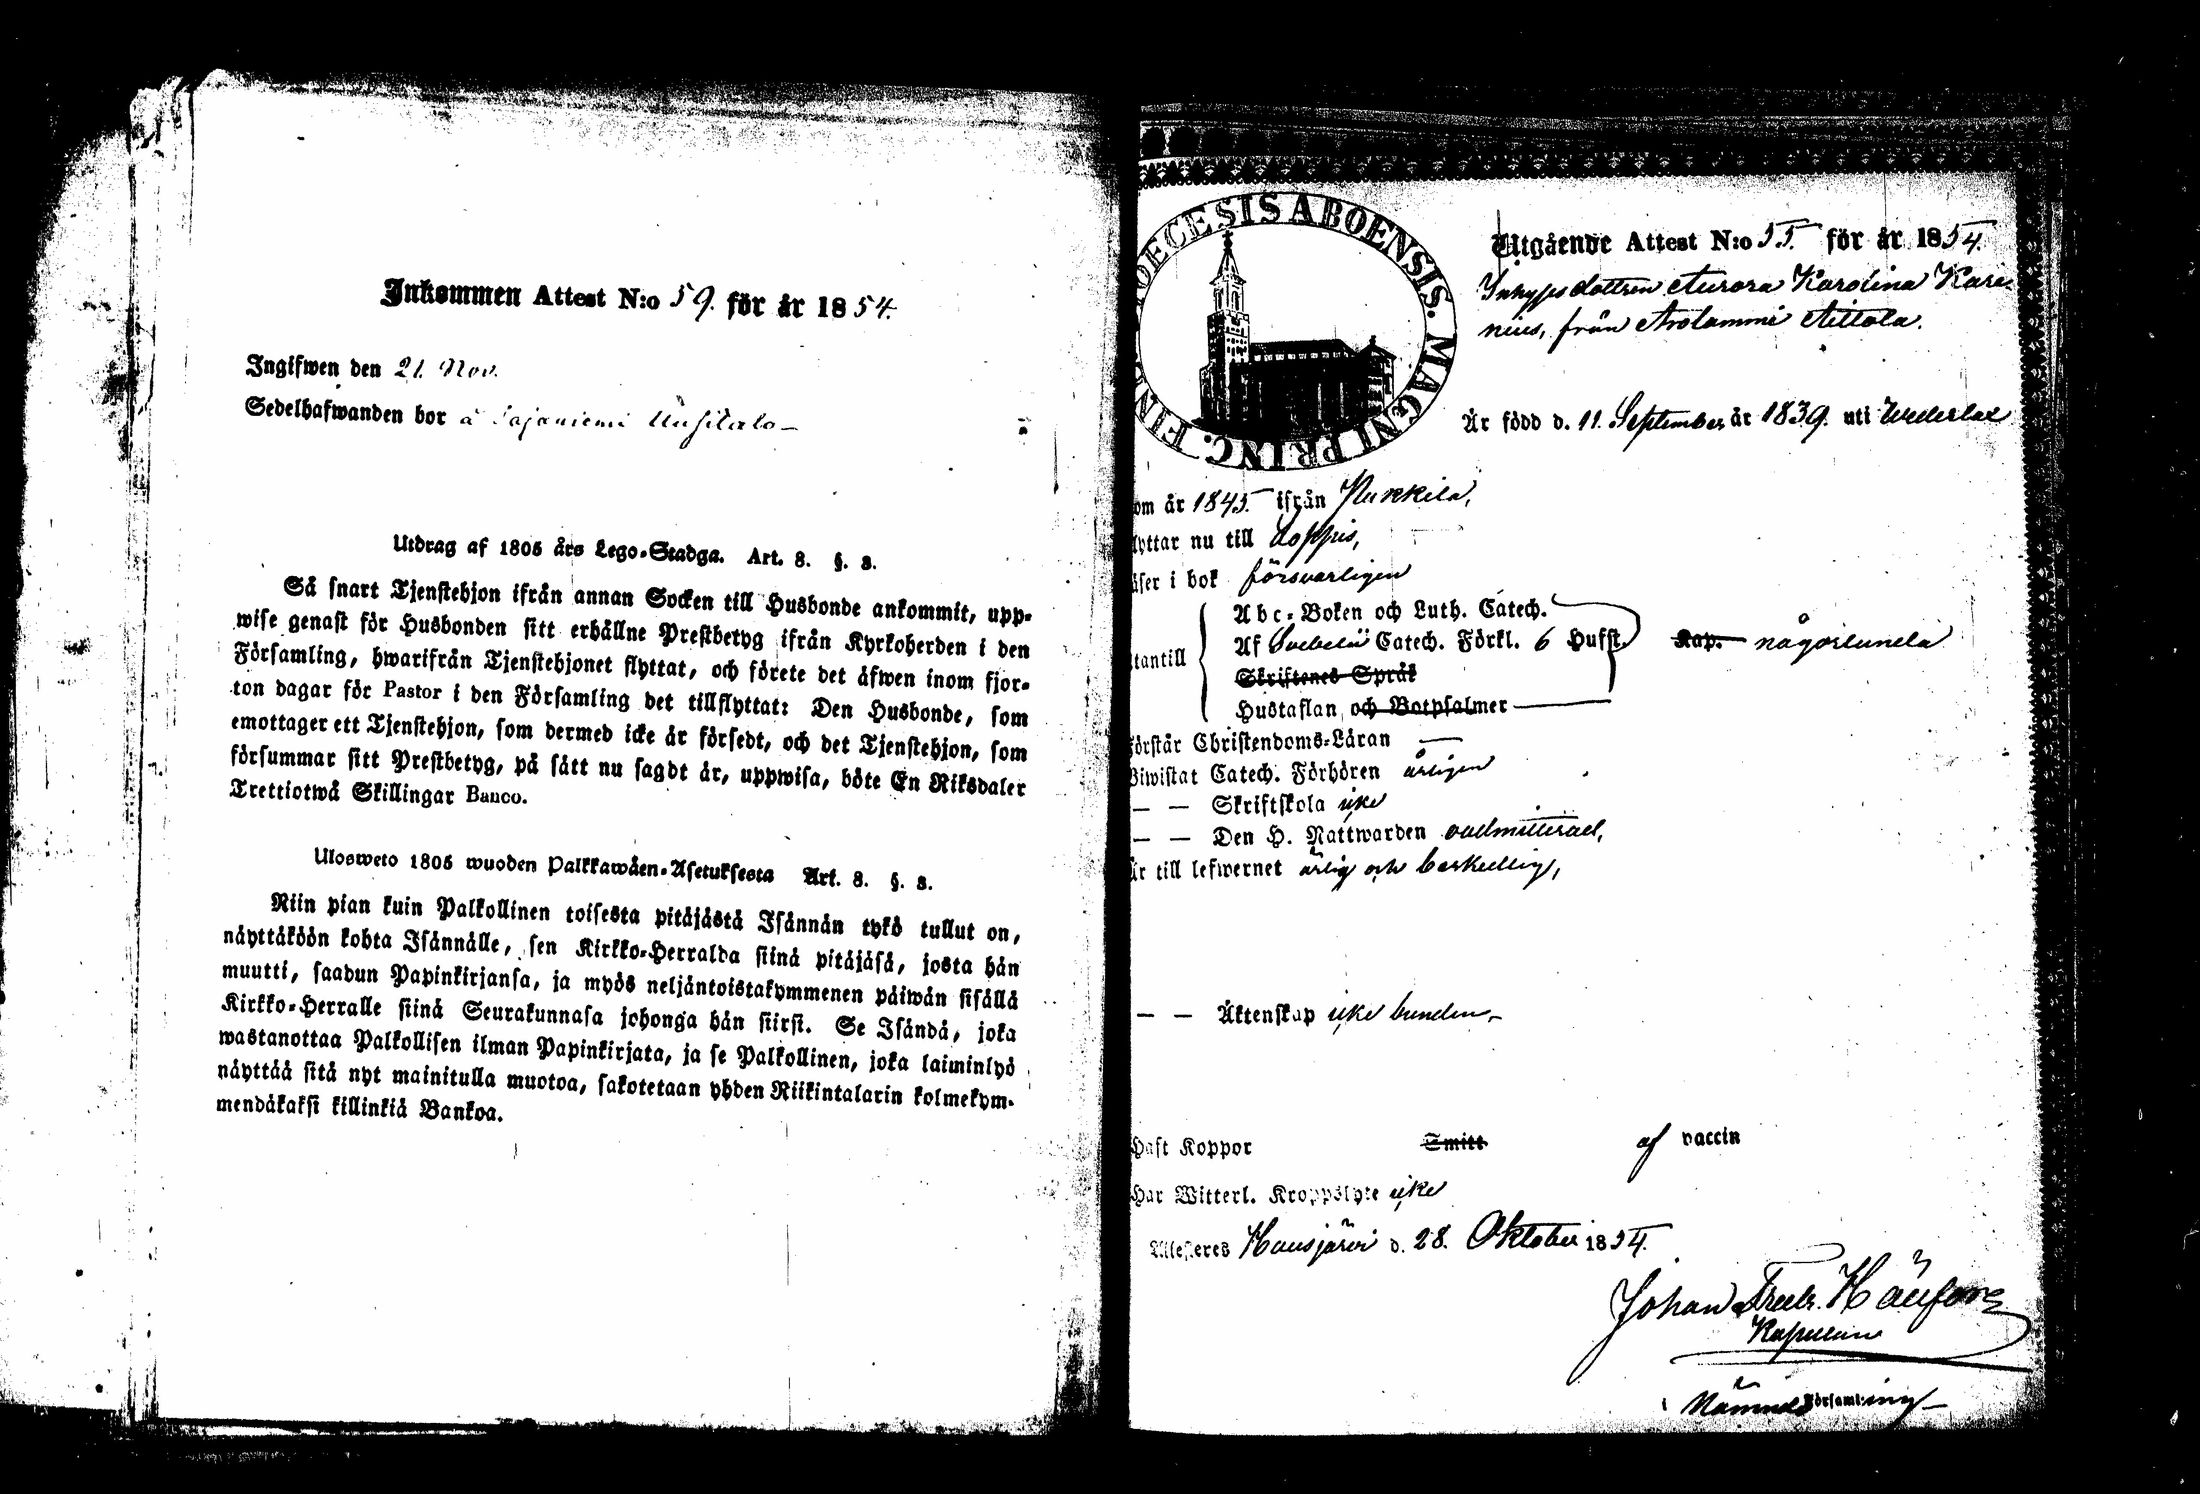 Inkommen Attest N:o 59. för år 1854.
Ingifwen den 21. Nov.
Sedelhafwanden bor å Sajaniemi Uusitalo
Utdrag af 1805 års Lego-Stadga. Art. 8. §. 3.
Så snart Tjenstehjon ifrån annan Socken till Husbonde ankommit, upp-
wise genast för Husbonden sitt erhållne Prestbetyg ifrån Kyrkoherden i den
Församling, hwarifrån Tjenstehjonet flyttat, och förete det äfwen inom fjor-
ton dagar för Pastor i den Församling det tillflyttat: Den Husbonde, som
emottager ett Tjenstehjon, som dermed icke är försedt, och det Tjenstehjon, som
försummar sitt Prestbetyg, på sätt nu sagdt är, uppwisa, böte En Riksdaler
Trettiotwå Skillingar Banco.
Ulosweto 1805 wuoden Palkkawäen-Asetuksesta Art. 8. §. 3.
Niin pian kuin Palkollinen toisesta pitäjästä Isännän tykö tullut on,
näyttäköön kohta Isännälle, sen Kirkko-Herralda siinä pitäjäsä, josta hän
muutti, saadun Papinkirjansa, ja myös neljäntoistakymmenen päiwän sisällä
Kirkko-Herralle siinä Seurakunnasa johonga hän siirsi. Se Isändä, joka
wastanottaa Palkollisen ilman Papinkirjata, ja se Palkollinen, joka laiminlyö
näyttää sitä nyt mainitulla muotoa, sakotetaan yhden Riikintalarin kolmekym-
mendäkaksi killinkiä Bankoa.
DIOECESIS ABOENSIS. MAGNI PRINC. FINL.
Utgående Attest N:o 55. för år 1854.
Inhysesdottren Aurora Karolina Kare-
nius, från Arolammi Aittola.
Är född d. 11. September år 1839. uti Wederlax
om år 1845 ifrån Pukkila,
lyttar nu till Loppis,
äser i bok försvarligen
utantill
Abc-Boken och Luth. Catech.
Af Svebelii Catech. Förkl. 6 Hufst. Kap. någorlunda
Skriftenes Språk
Hustaflan och Botpsalmer
Förstår Christendoms-Läran —
Biwistat Catech. Förhören årligen
— — Skriftskola icke
— — Den H. Nattwarden oadmitterad,
Är till lefwernet ärlig och beskedlig,
— — Äktenskap icke bunden
Haft Koppor Smitt af vaccin
Har Witterl. Kroppslyte icke
Attesteres Hausjärvi d. 28. Oktober 1854.
Johan Fredr.
Kapellan
i Nämnde Församling